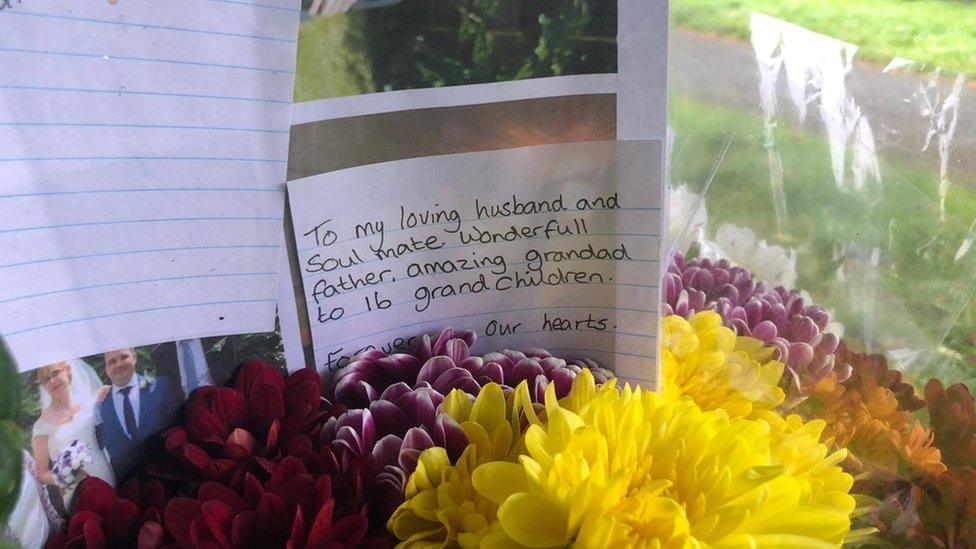 To my loving husband and
Soul mate. Wonderfull
father. amazing grandad
to 16 grand children.
Forever Our hearts.